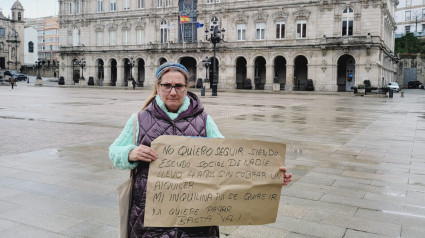 NO QUIERO SEGUIR SIENDO
ESCUDO SOCIAL DE NADIE
LLEVO 4 AÑOS SIN COBRAR UN
ALQUILER
MI INQUILINA NI SE QUIERE IR
NI QUIERE PAGAR
BASTA YA!